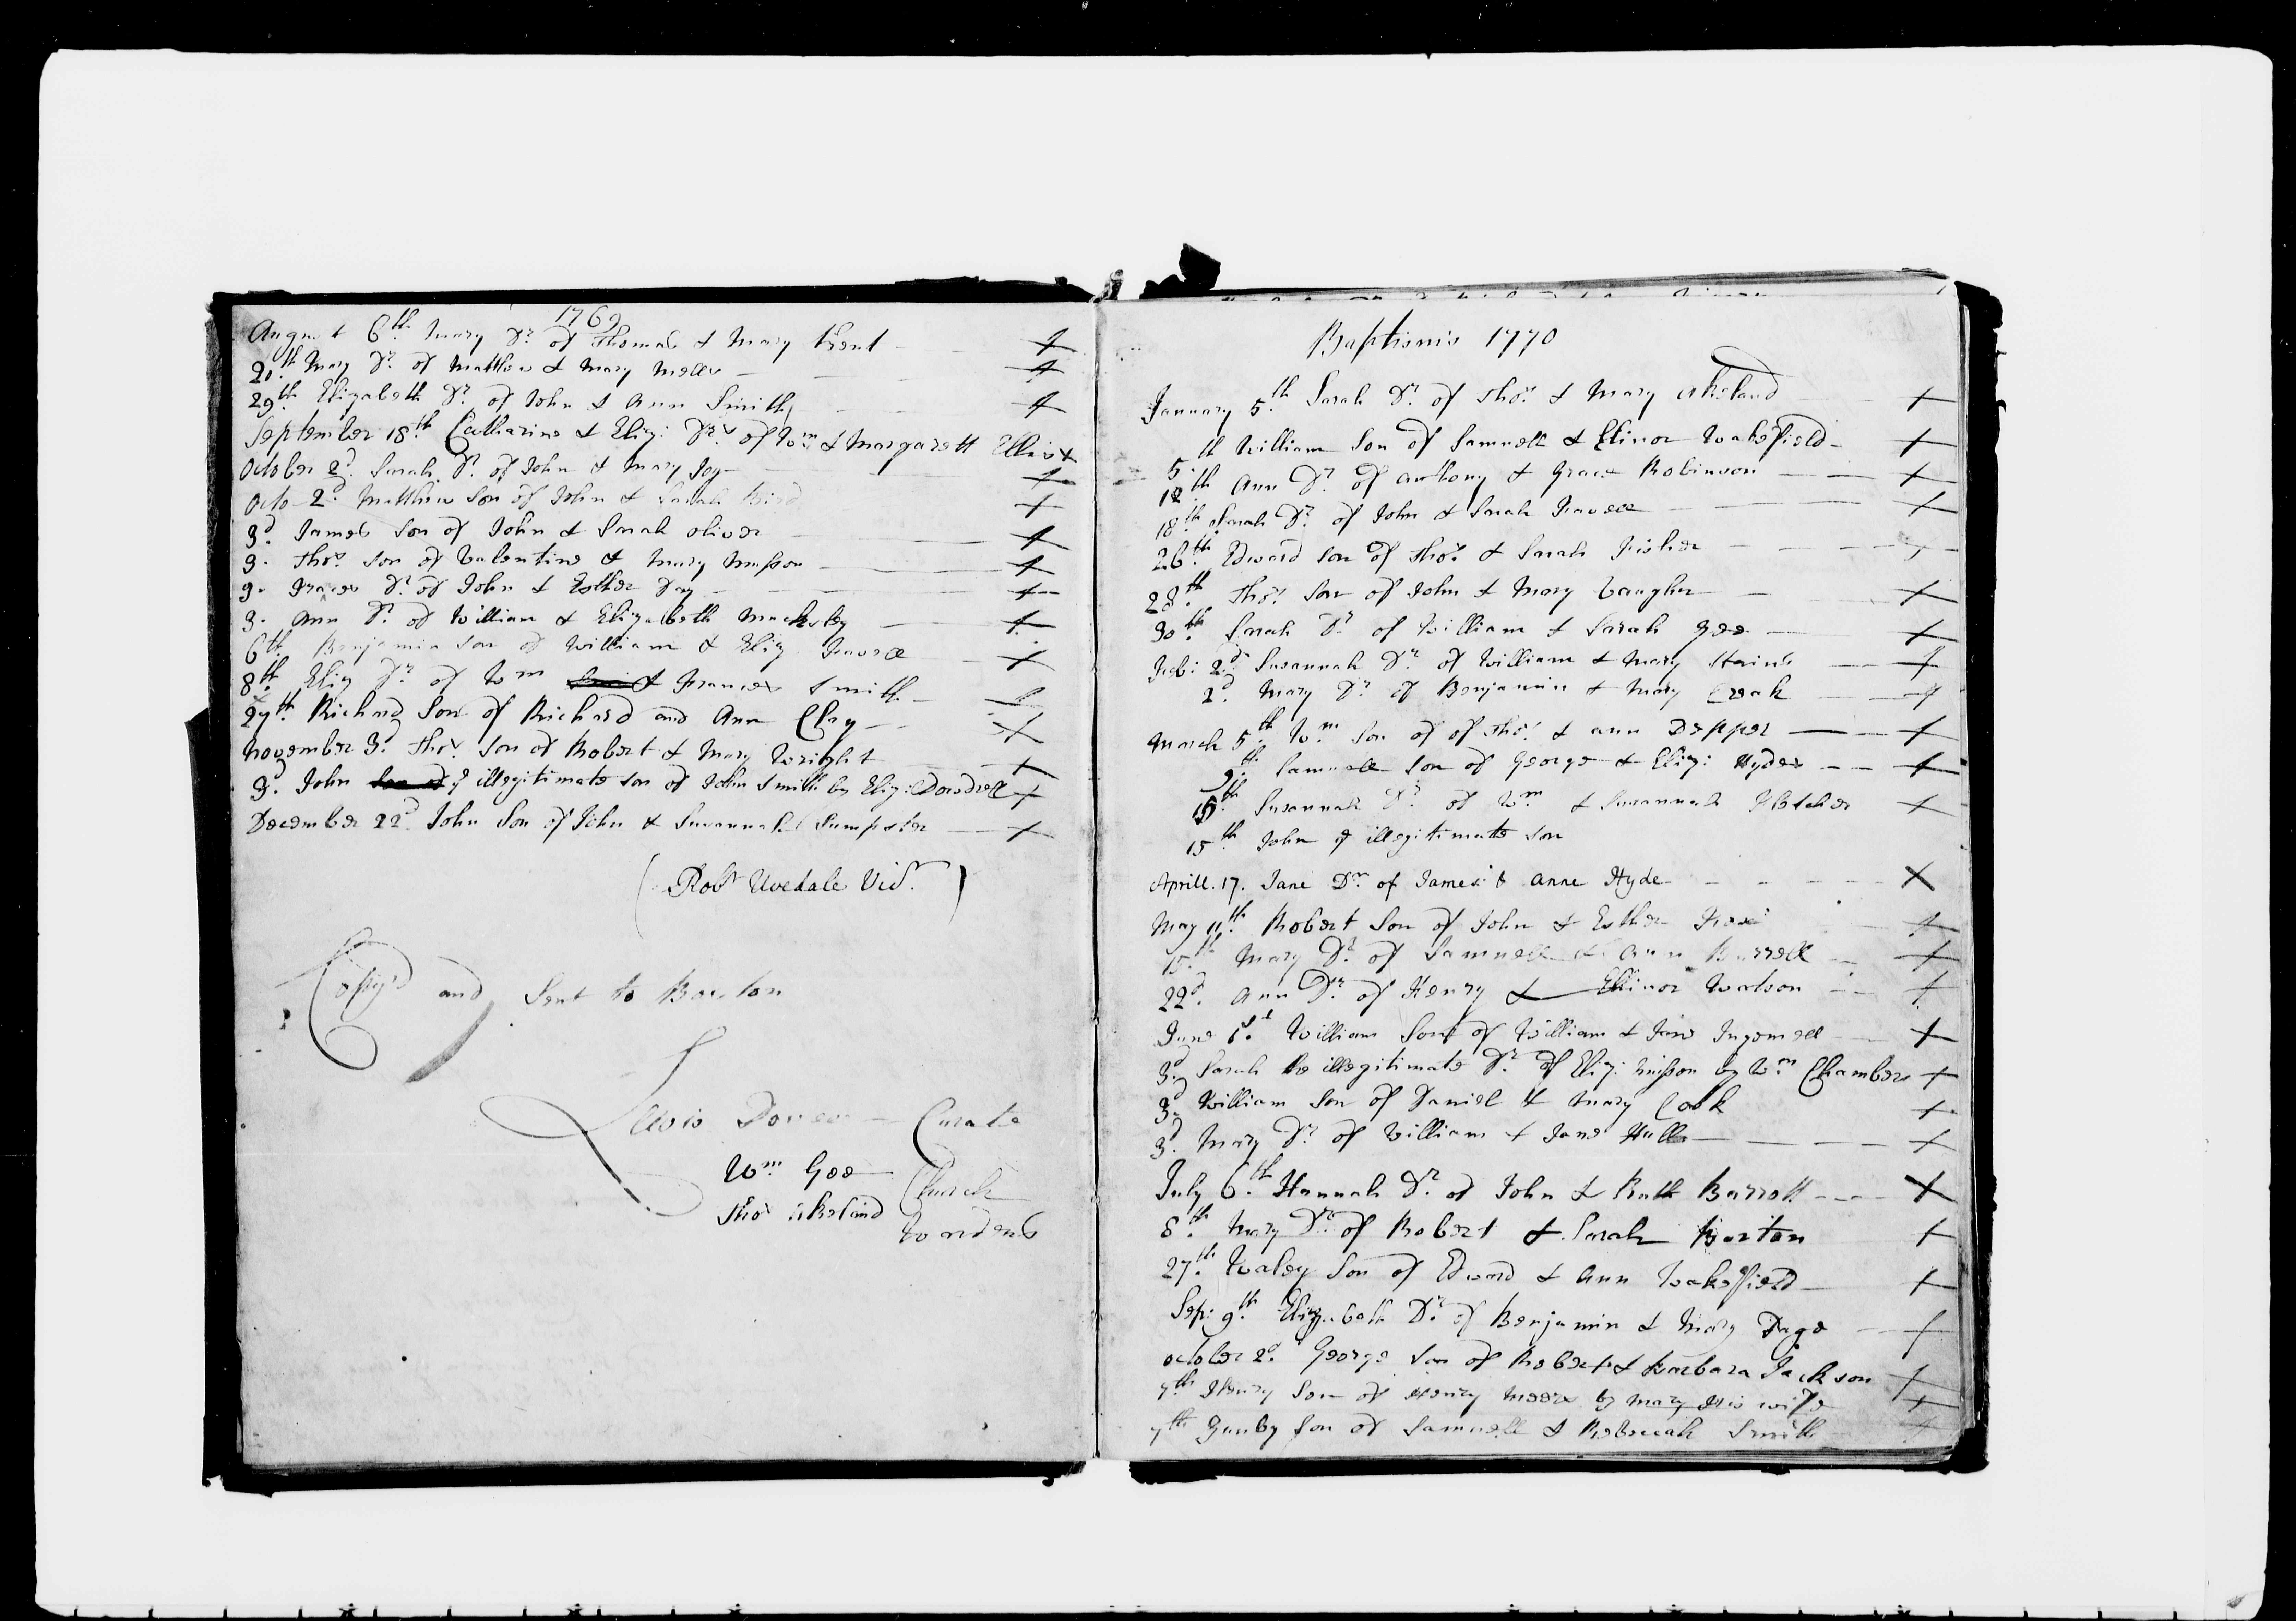 1769
August 6th Mary Dr of Thomas & Mary Kent
21th Mary Dr of Matthew & Mary
29th Elizabeth Dr of John & Ann Smith
September 18th Catharine & Eliz: Drs of Wm & Margarett Ellis
October 2d Sarah Dr of John & Mary Joy
Octo 2d Matthew Son of John & Sarah Bird
3d James Son of John & Sarah Oliver
3. Thos Son of Valentine & Mary Musson
3. Frances Dr of John & Esther Day
3. Ann Dr of William & Elizabeth Mucksley
6th Benjamin Son of William & Eliz
8th Eliz Dr of Wm & Frances Smith
27th Richard Son of Richard and Ann Clay
November 3d Thos Son of Robert & Mary Wright
3d John ye illegitimate son of John Smith by Eliz: Dowdell
December 22d John Son of John & Susannah Sumpster
(Robt Uvedale Vicr)
Copy'd and Sent to Boston
Lewis Curate
Wm Goo Church
Thos Akeland Wardens
Baptisms 1770
January 5th Sarah Dr of Thos & Mary Akeland
5th William Son of Samuell & Elinor Wakefield
12th Ann Dr of Anthony & Grace Robinson
18th Sarah Dr of John & Sarah
26th Edward Son of Thos & Sarah Fisher
28th Thos Son of John & Mary Vaughn
30th Sarah Dr of William & Sarah Geo
Feb: 2d Susannah Dr of William & Mary Stains
2d Mary Dr of Benjamin & Mary Creak
March 5th Wm Son of of Thos & Ann Depper
9th Samuell Son of George & Eliz: Hydes
15th Susannah Dr of Wm & Susannah Fletcher
15th John ye illegitimate son
Aprill. 17. Jane Dr of James & Anne Hyde
May 11th Robert Son of John & Esther
15th Mary Dr of Samuell & Ann Burrell
22d Ann Dr of Henry & Ellinor Watson
June 1st William Son of William & Jane Ingomell
3d Sarah the illegitimate Dr of Eliz: Musson by Wm Chambers
3d William Son of Daniel & Mary Cook
3d Mary Dr of William & Jane Hull
July 6th Hannah Dr of John & Ruth Barrott
8th Mary Dr of Robert & Sarah Burton
27th Waley Son of Edward & Ann Wakeffield
Sep: 9th Elizabeth Dr of Benjamin & Mary Page
October 2d George Son of Robert & Barbara Jackson
7th Henry Son of Henry by Mary His wife
7th Gunby Son of Samuell & Rebeccah Smith